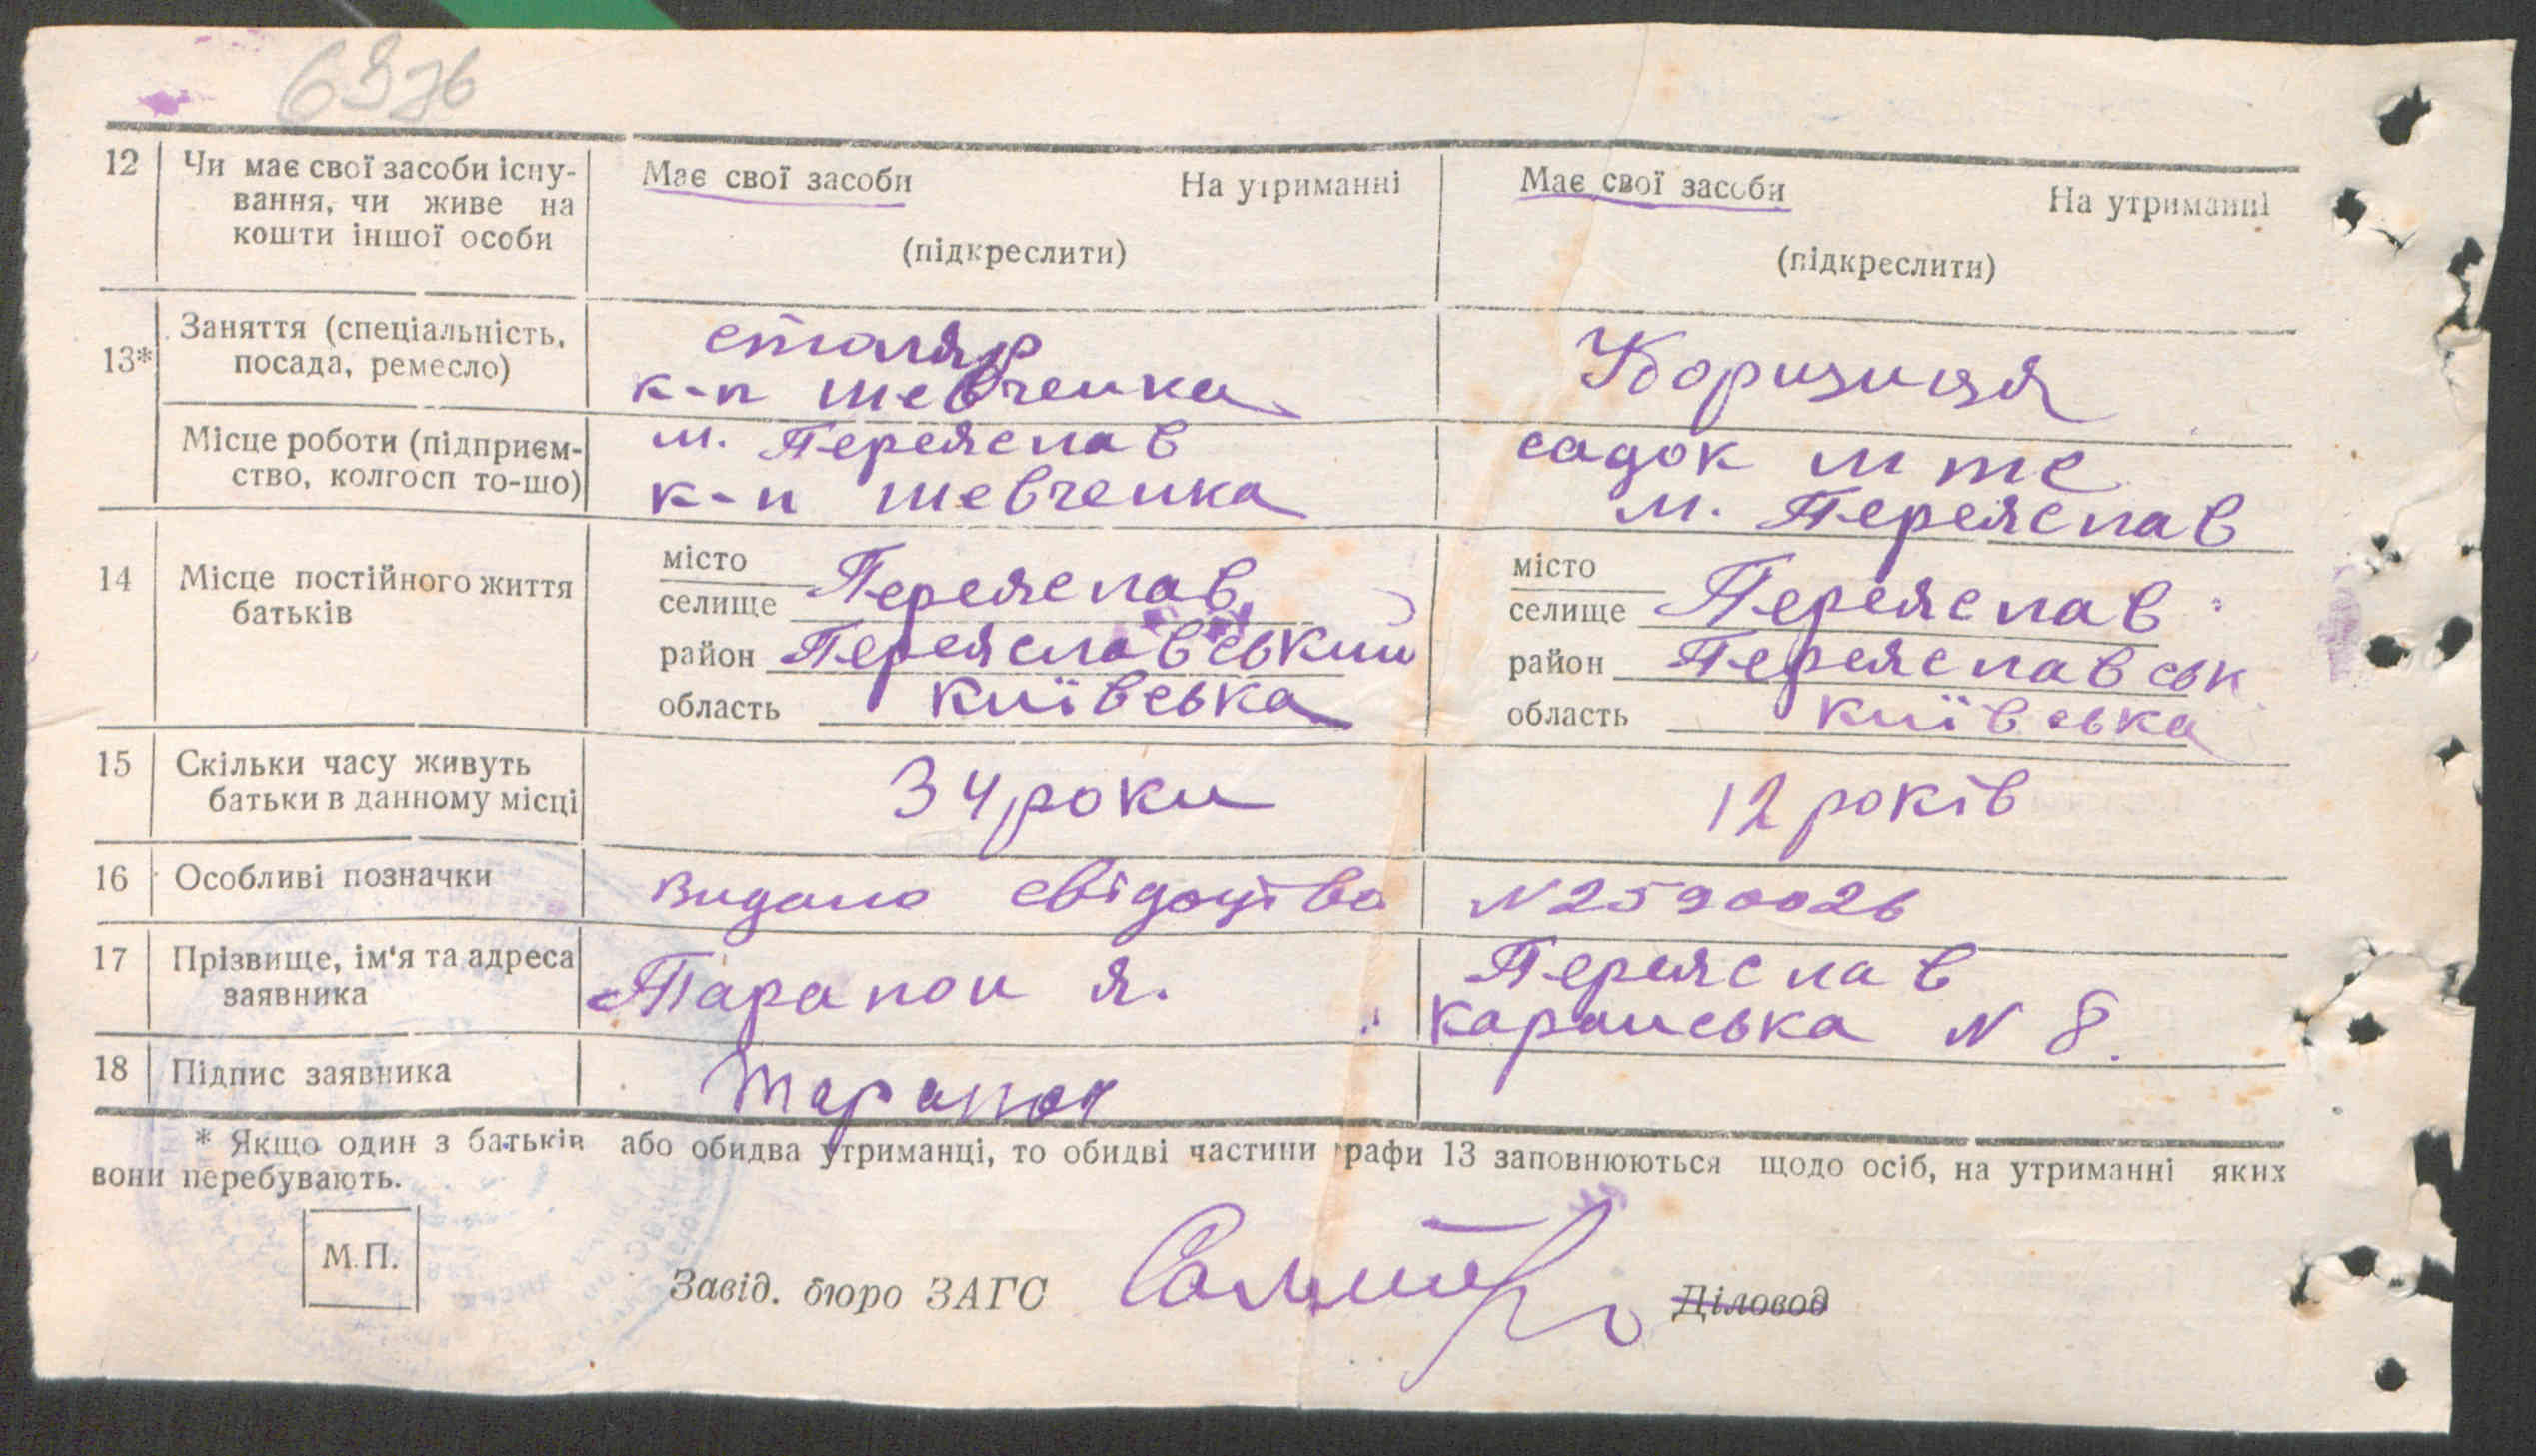 6976
12 Чи має свої засоби існу-
вання, чи живе на
кошти іншої особи
Має свої засоби На утриманні
(підкреслити)
Має свої засоби На утриманні
(підкреслити)
13* Заняття (спеціальність,
посада, ремесло)
столяр
к-п шевченка
Місце роботи (підприєм-
ство, колгосп то-що)
м. Переяслав
к-п шевченка
садок мтс
м. Переяслав
14 Місце постійного життя
батьків
місто
селище Переяслав
район Переяславський
область київська
місто
селище Переяслав
район Переяславськ
область київська
15 Скільки часу живуть
батьки в данному місці
34 роки
12 років
16 Особливі позначки
видано свідоцтво N 2590026
17 Прізвище, ім'я та адреса
заявника
Тарапон я.
Переяслав
каранська N 8.
18 Підпис заявника
Тарапон
* Якщо один з батьків або обидва утриманці, то обидві частини графи 13 заповнюються щодо осіб, на утриманні яких
вони перебувають.
М.П.
Завід. бюро ЗАГС
Діловод